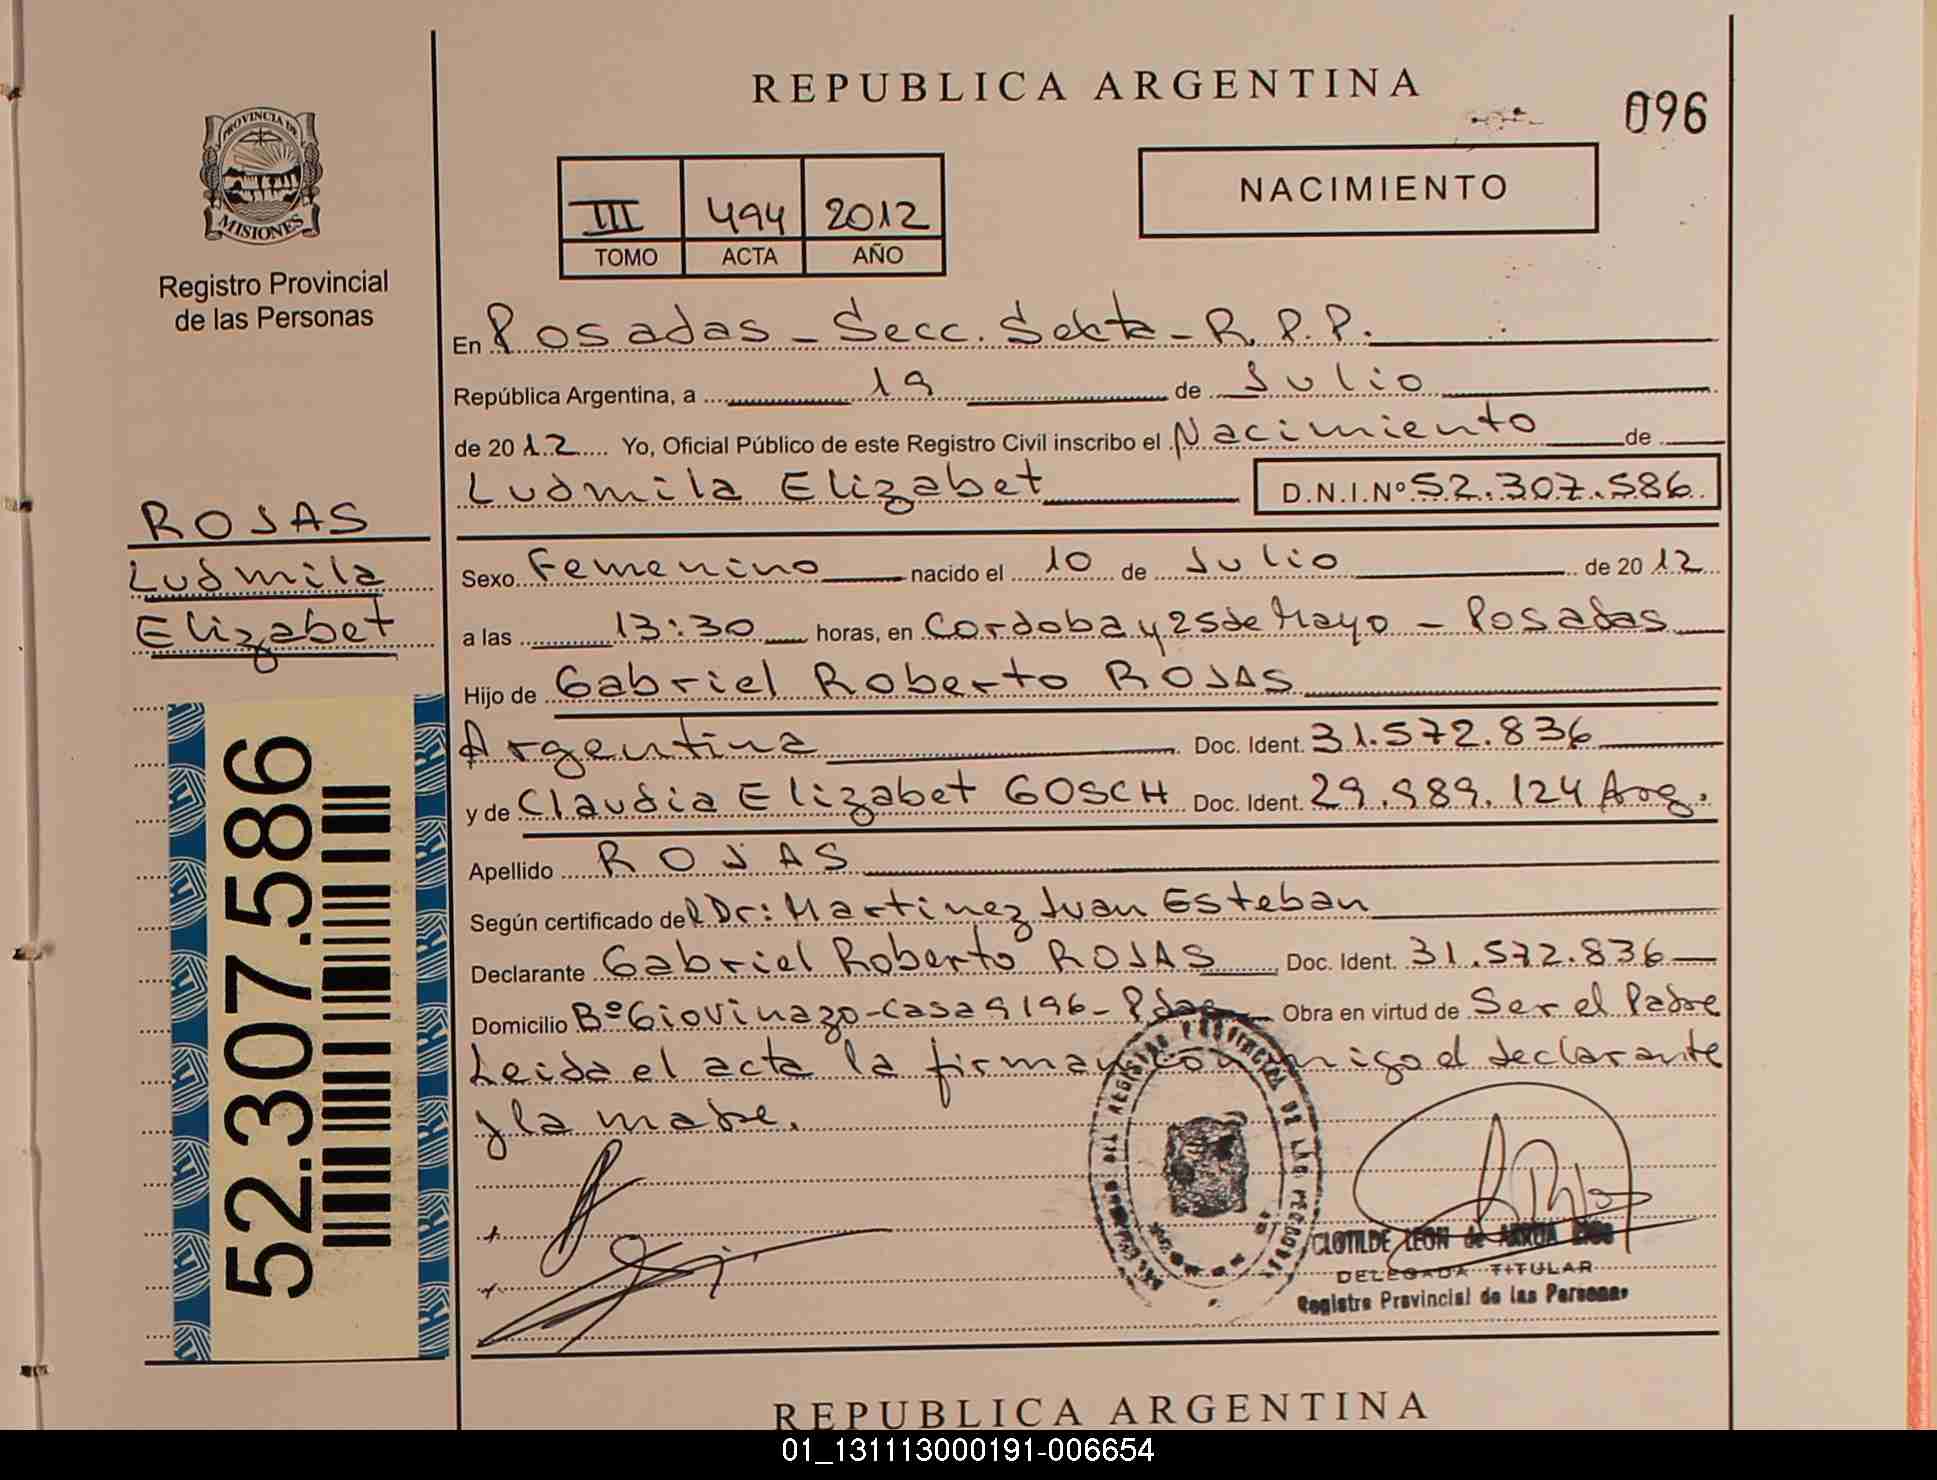 REPUBLICA ARGENTINA
096
PROVINCIA DE
MISIONES
Registro Provincial
de las Personas
III 494 2012
TOMO ACTA AÑO
NACIMIENTO
En Posadas - Secc. Sexta - R.P.P.
República Argentina, a 19 de Julio
de 2012 Yo, Oficial Público de este Registro Civil inscribo el Nacimiento de
Ludmila Elizabet D.N.I.Nº 52.307.586
ROJAS
Ludmila
Elizabet
Sexo Femenino nacido el 10 de Julio de 2012
a las 13:30 horas, en Cordoba y 25 de Mayo - Posadas
Hijo de Gabriel Roberto ROJAS
Argentina Doc. Ident. 31.572.836
y de Claudia Elizabet GOSCH Doc. Ident. 29.989.124 Arg.
Apellido ROJAS
Según certificado del Dr: Martinez Juan Esteban
Declarante Gabriel Roberto ROJAS Doc. Ident. 31.572.836
Domicilio Bº Giovinazo - Casa 9196 - Pdas Obra en virtud de Ser el Padre
Leida el acta la firman conmigo el declarante
y la madre.
52.307.586
REGISTRO PROVINCIAL DE LAS PERSONAS
CLOTILDE LEON de ARRUA
DELEGADA TITULAR
Registro Provincial de las Personas
REPUBLICA ARGENTINA
01_131113000191-006654